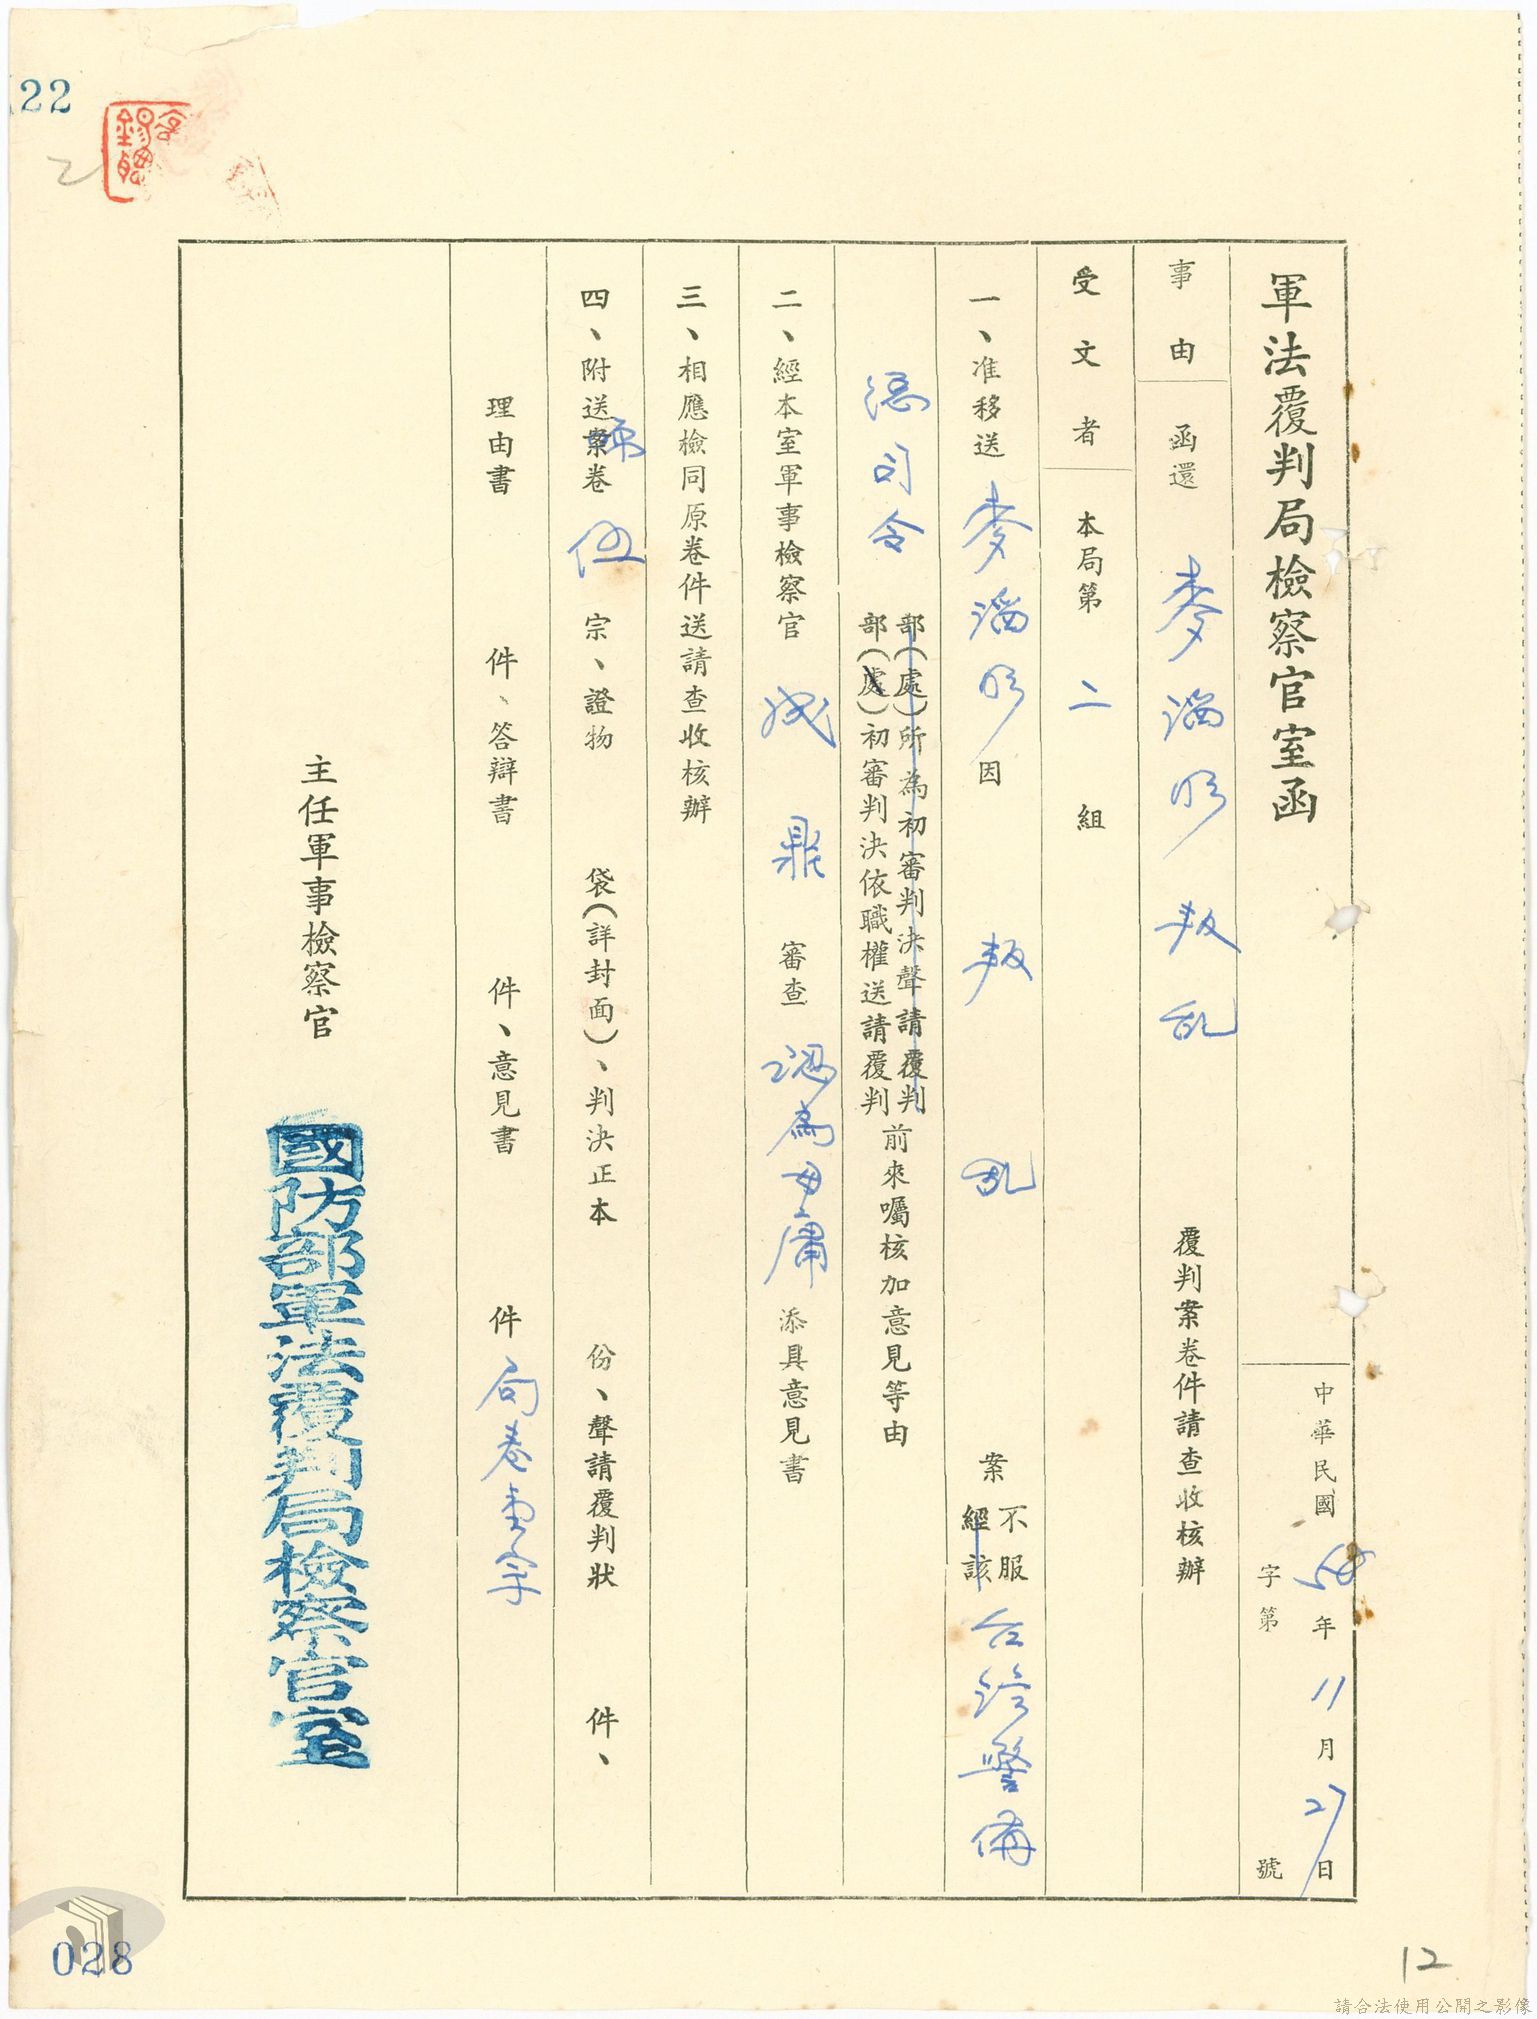 軍法覆判局檢察官室函
中華民國 54 年 11 月 27 日
字第 號
事由 函還 麥瑙明叛乱 覆判案卷件請查收核辦
受文者 本局第 二 組
一、准移送 麥瑙明 因 叛乱 案 不服 經該 台灣警備
總司令 部(處)所為初審判決聲請覆判
部(處)初審判決依職權送請覆判 前來囑核加意見等由
二、經本室軍事檢察官 成鼎 審查 認為毋庸 添具意見書
三、相應檢同原卷件送請查收核辦
四、附送原案卷 伍 宗、證物 袋(詳封面)、判決正本 份、聲請覆判狀 件、
理由書 件、答辯書 件、意見書 件 局卷壹宗
主任軍事檢察官
國防部軍法覆判局檢察官室
22
028
12
請合法使用公開之影像